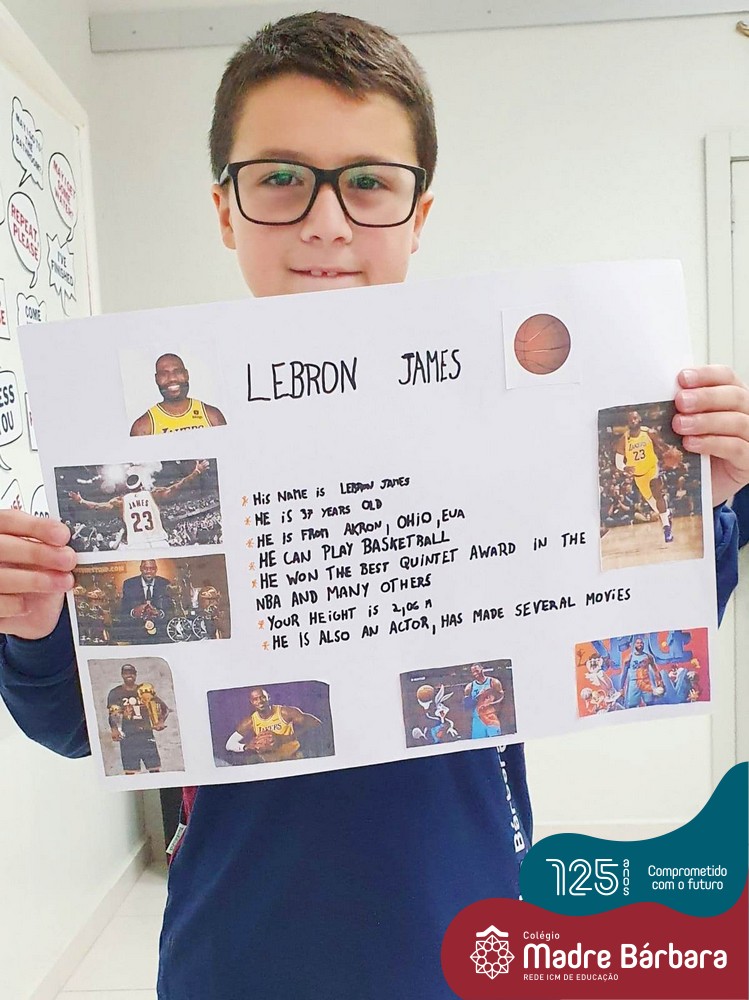 MAY I GO TO THE BATHROOM?
REPEAT PLEASE
I'VE FINISHED
COME
LEBRON JAMES
LAKERS
JAMES
23
23
* HIS NAME IS LEBRON JAMES
* HE IS 37 YEARS OLD
* HE IS FROM AKRON, OHIO, EUA
* HE CAN PLAY BASKETBALL
* HE WON THE BEST QUINTET AWARD IN THE
NBA AND MANY OTHERS
* YOUR HEIGHT IS 2,06 M
* HE IS ALSO AN ACTOR, HAS MADE SEVERAL MOVIES
LAKERS
125 anos
Comprometido
com o futuro
Colégio
Madre Bárbara
REDE ICM DE EDUCAÇÃO